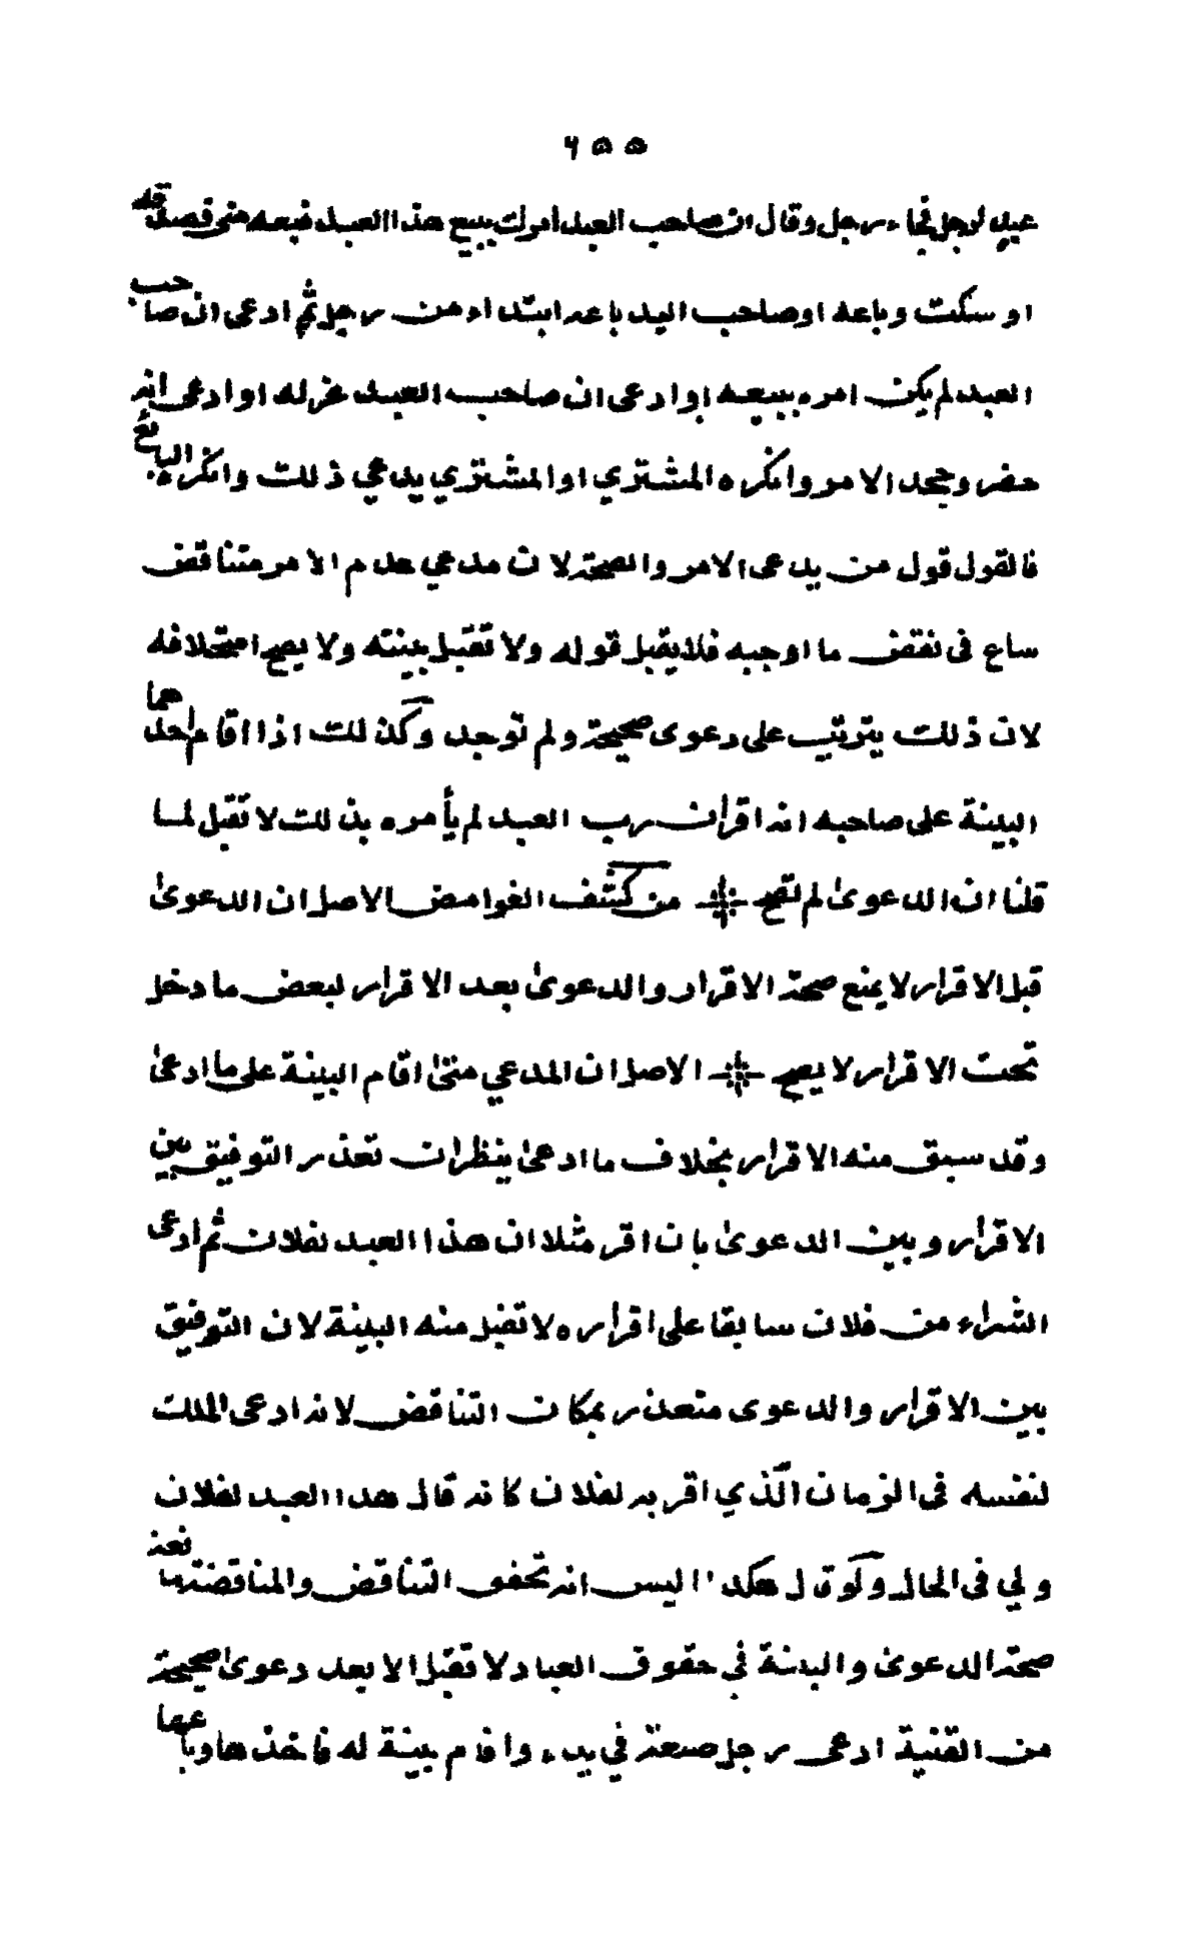 ٦٥٥
عبد لرجل فجاء رجل وقال ان صاحب العبد أمرك ببيع هذا العبد فبعه مني فصدقه
او سكت وباعه او صاحب اليد باعه ابتداء من رجل ثم ادعى ان صاحب
العبد لم يكن امره ببيعه او ادعى ان صاحب العبد عزله او ادعى انه
حضر وجحد الامر وانكره المشتري او المشتري يدعي ذلك وانكره البائع
فالقول قول من يدعى الامر والصحة لان مدعي عدم الامر متناقض
ساع فى نقض ما اوجبه فلا يقبل قوله ولا تقبل بينته ولا يصح استحلافه
لان ذلك يترتب على دعوى صحيحة ولم توجد وكذلك اذا اقام احدهما
البينة على صاحبه انه اقر أن رب العبد لم يأمره بذلك لا تقبل لما
قلنا ان الدعوىٰ لم تصح ۞ من كشف الغوامض الاصل ان الدعوىٰ
قبل الاقرار لا يمنع صحة الاقرار والدعوىٰ بعد الاقرار لبعض ما دخل
تحت الاقرار لا يصح ۞ الاصل ان المدعي متىٰ اقام البينة على ما ادعىٰ
وقد سبق منه الاقرار بخلاف ما ادعىٰ ينظر ان تعذر التوفيق بين
الاقرار وبين الدعوىٰ بان اقر مثلا ان هذا العبد لفلان ثم ادعى
الشراء من فلان سابقا على اقراره لا تقبل منه البينة لان التوفيق
بين الاقرار والدعوى متعذر بمكان التناقض لانه ادعى الملك
لنفسه فى الزمان الّذي اقر به لفلان كانه قال هذا العبد لفلان
ولي فى الحال ولو قال هكذا اليس انه تحقق التناقض والمناقضة
صحة الدعوىٰ والبينة في حقوق العباد لا تقبل الا بعد دعوىٰ صحيحة
من القنية ادعى رجل ضيعة في يده واقام بينة له فاخذها وباعها